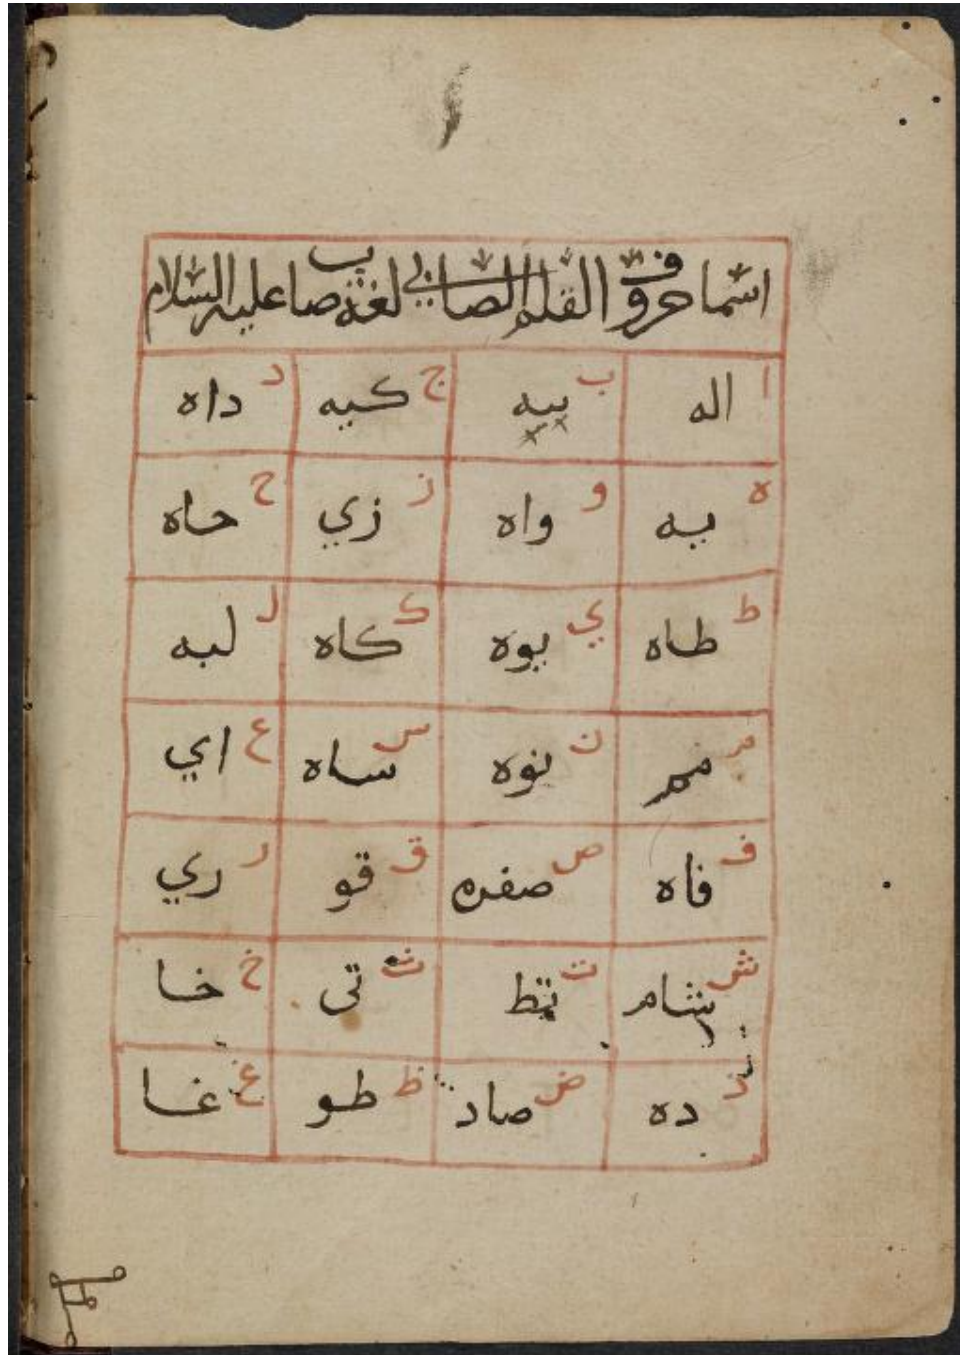 اسما حروف القلم الصابي لغة صاب عليه السلام
ا اله ب بيه ج كيه د داه
ه يه و واه ز زي ح حاه
ط طاه ي يوه ك كاه ل لبه
م مم ن نوه س ساه ع اي
ف فاه ص صفره ق قو ر ري
ش شام ت تط ث تى خ خا
ذ ده ض صاد ظ طو غ غا